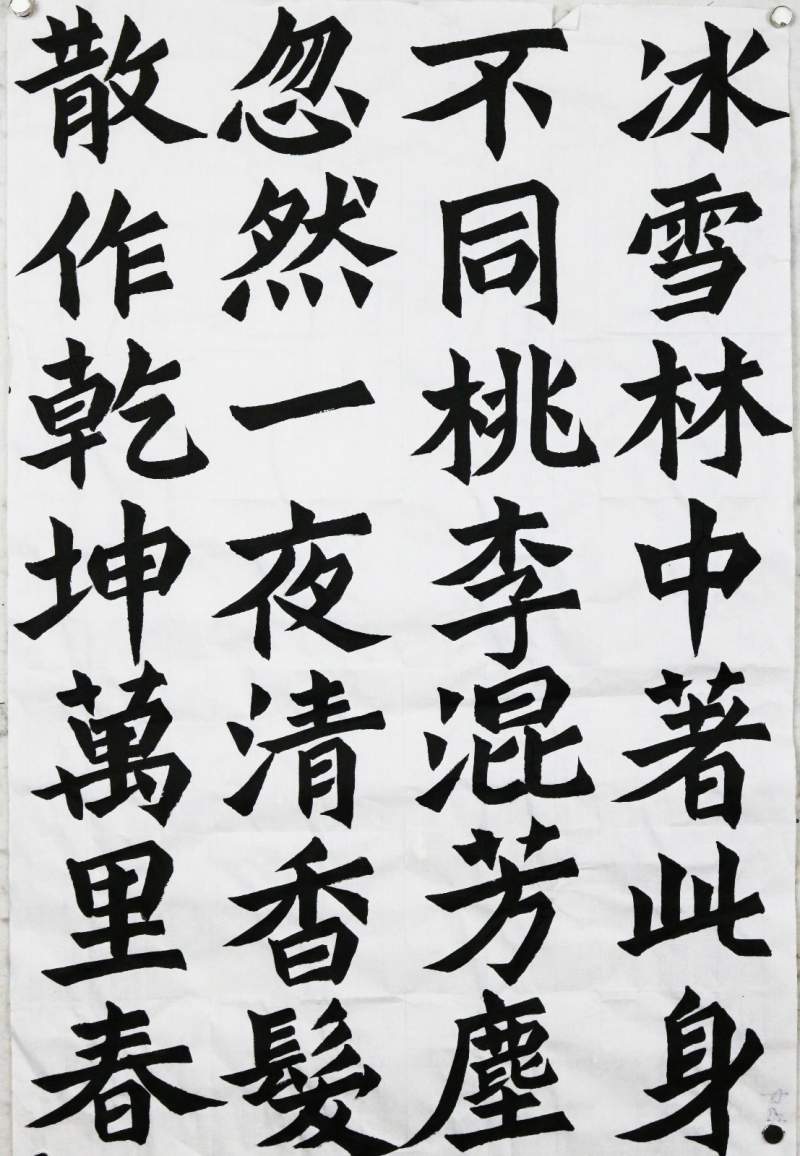 冰雪林中著此身
不同桃李混芳塵
忽然一夜清香髮
散作乾坤萬里春